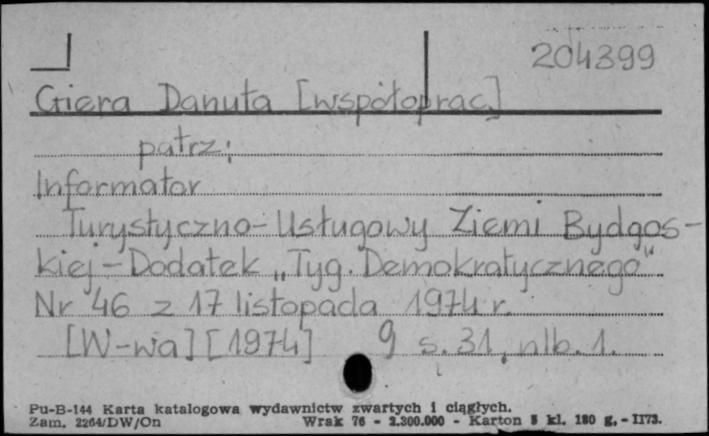 204399
Giera Danuta [współoprac.]
patrz:
Informator
Turystyczno-Usługowy Ziemi Bydgos-
kiej - Dodatek „Tyg. Demokratycznego"
Nr 46 z 17 listopada 1974 r.
[W-wa] [1974] 9 s. 31, nlb. 1.
Pu-B-144 Karta katalogowa wydawnictw zwartych i ciągłych.
Zam. 2264/DW/On Wrak 76 - 2.300.000 - Karton 5 kl. 180 g. - II73.